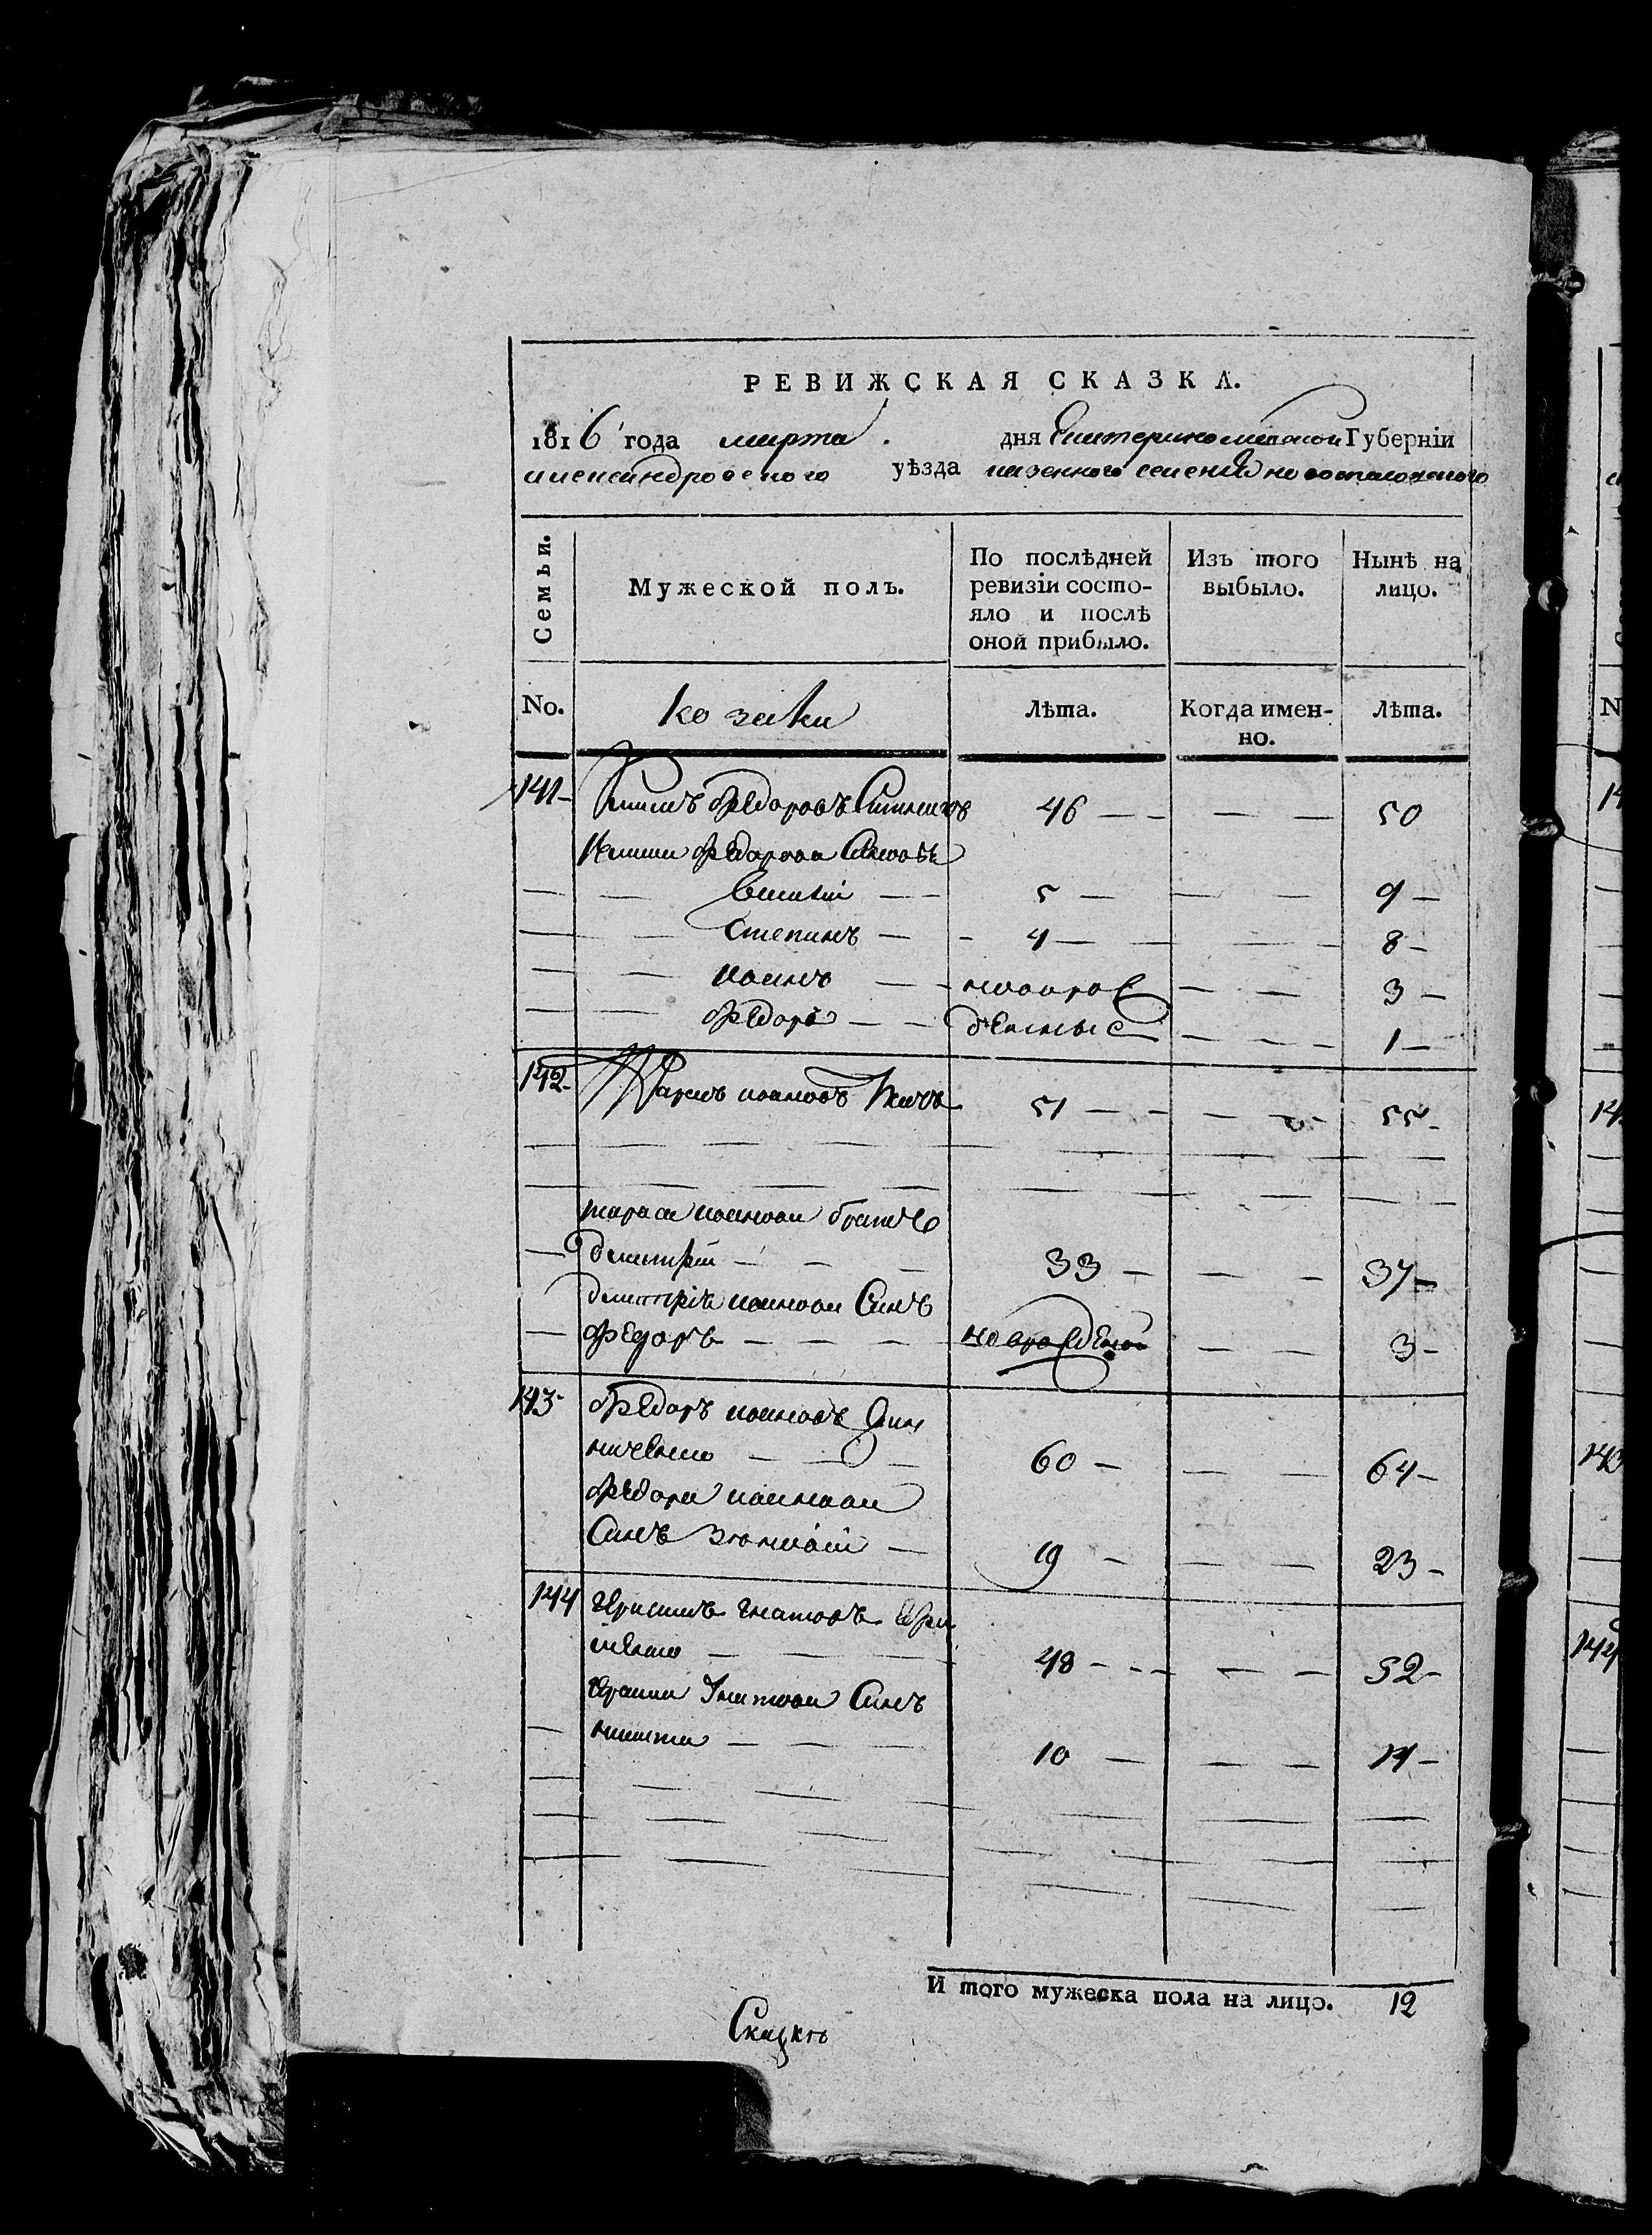 РЕВИЖСКАЯ СКАЗКА.
1816 года марта . дня Екатеринославской Губерніи
александровского уѣзда казенного селенія новопавловского
Семьи. Мужеской полъ. По послѣдней ревизіи состояло и послѣ оной прибыло. Изъ того выбыло. Нынѣ на лицо.
No. козаки Лѣта. Когда именно. Лѣта.
141 Федоровъ 46 — — — — 50
Федорова Синовья
— — Василій — — 5 — — — 9 —
— — Степанъ — - 4 — — — 8 —
— — Иоанъ — — новорож — — 3 —
— — Федоръ — — денные — — — 1 —
142 иоановъ 51 — — — — 55 —
тараса иоанова братъ
— Дмитрій — — — 33 — — — 37 —
Дмитрія иоанова Синъ
— Федоръ — — — новорожденой — — 3 —
143 Федоръ иоановъ
60 — — — 64 —
Федора иоанова
Синъ — 19 — — — 23 —
144 Герасимъ гнатовъ
— — — 48 — — — — 52 —
Гнатова Синъ
— никита — — — 10 — — — 14 —
И того мужеска пола на лицо. 12
Сказкѣ